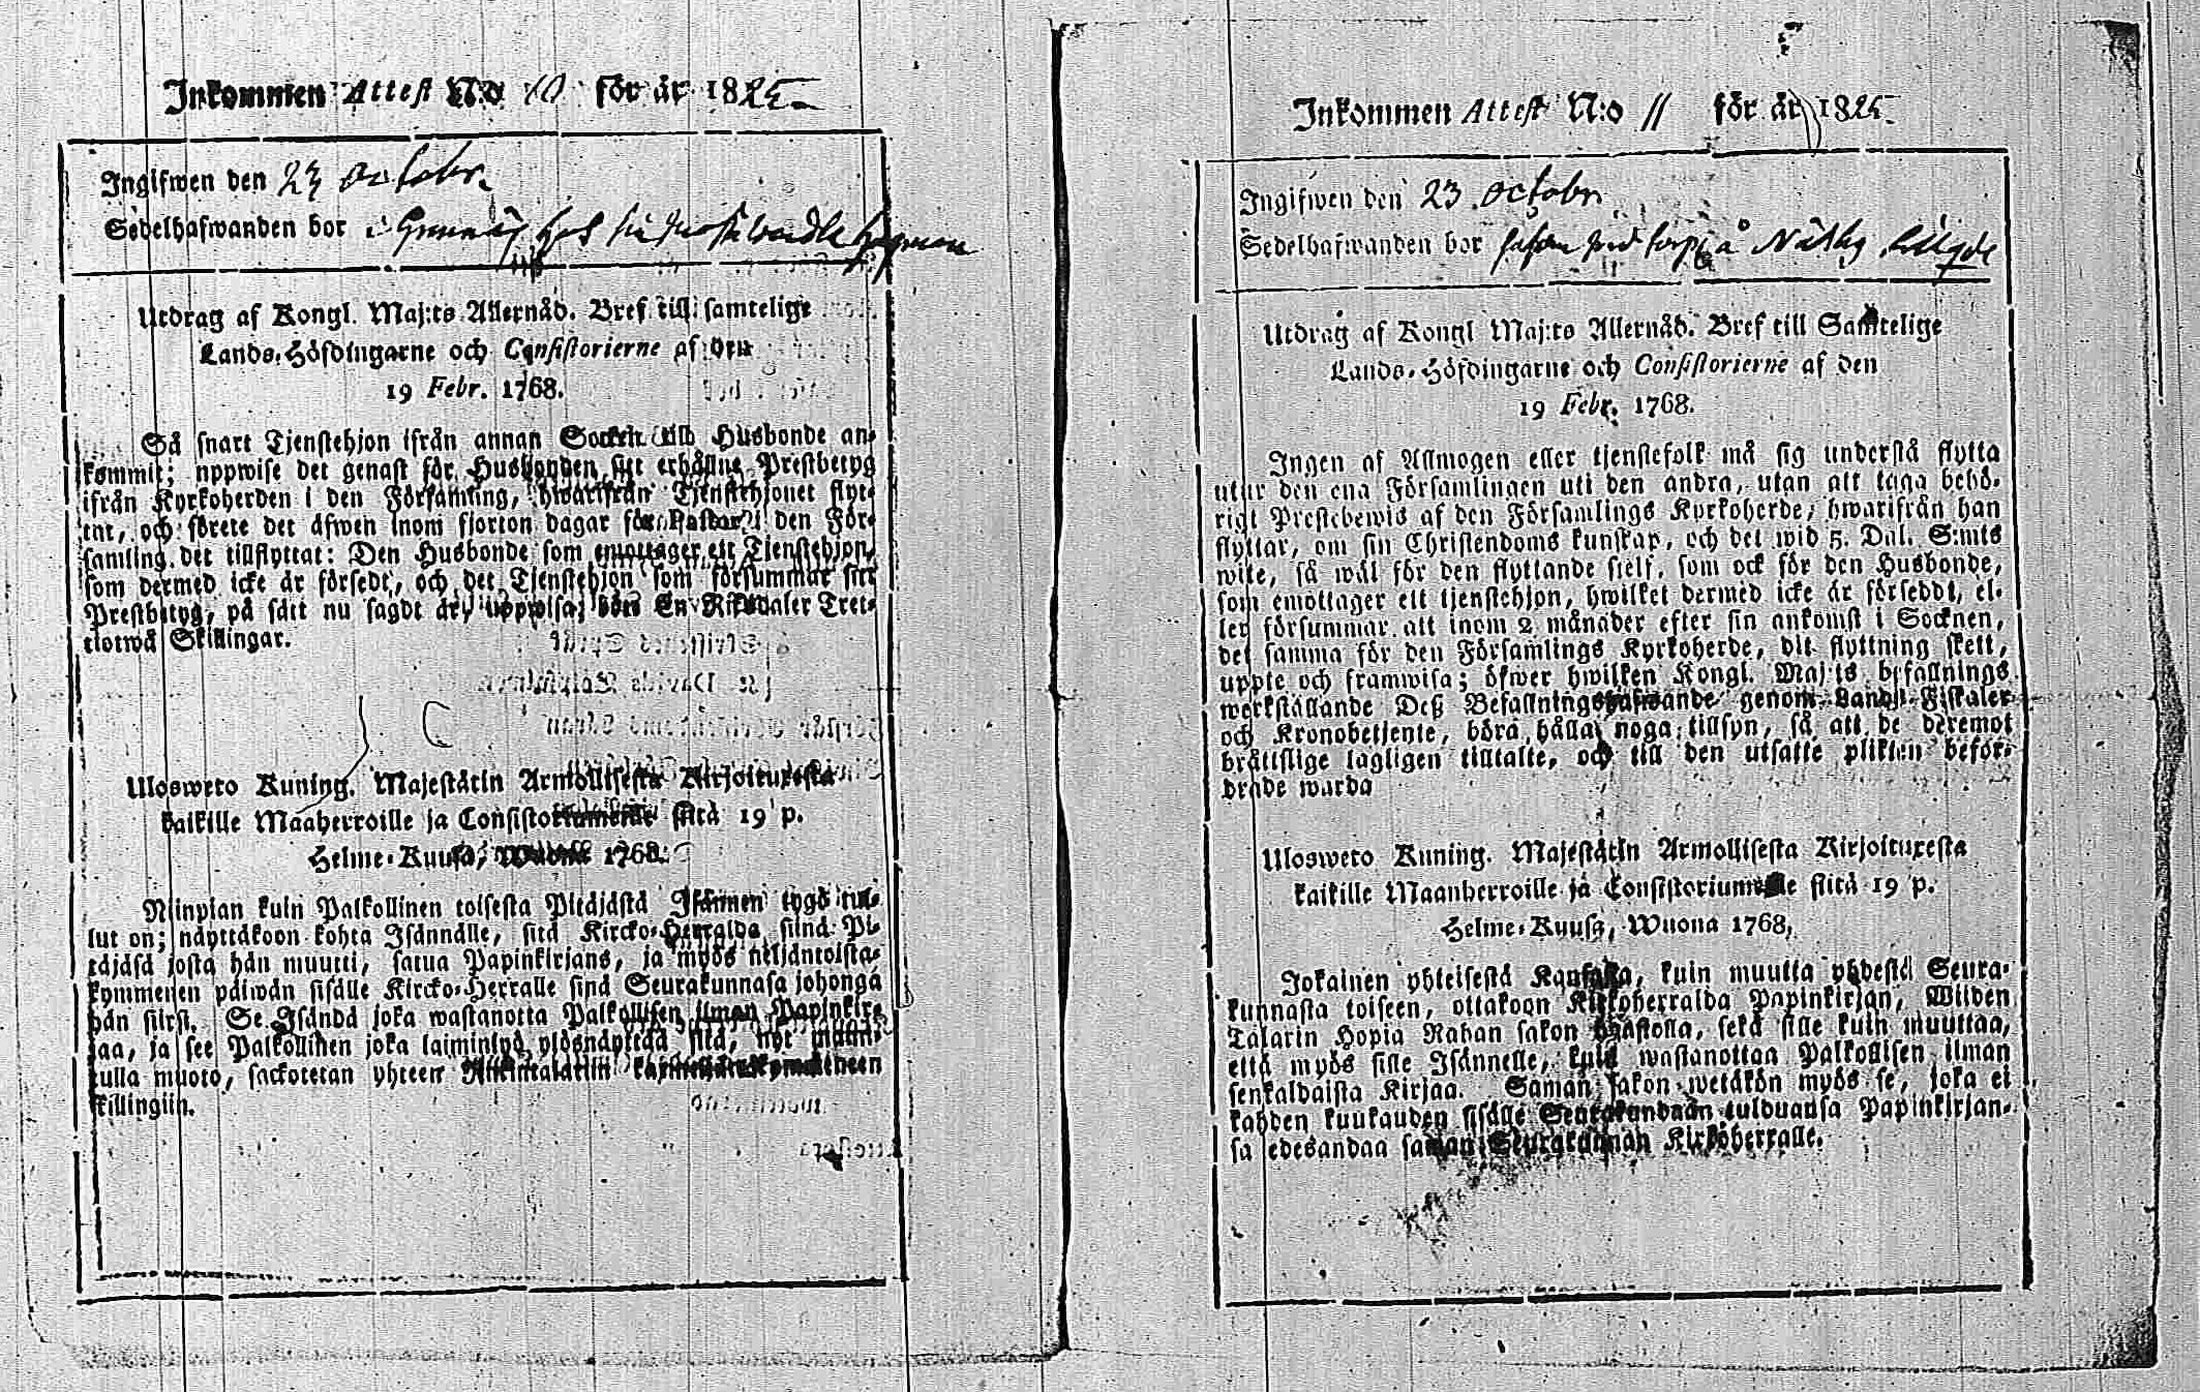 Inkommen Attest N:o 10 för år 1825.
Ingifwen den 23 octobr.
Sedelhafwanden bor i
Utdrag af Kongl. Maj:ts Allernåd. Bref till samtelige
Lands-Höfdingarne och Consistorierne af den
19 Febr. 1768.
Så snart Tjenstehjon ifrån annan Socken till Husbonde an-
kommit; uppwise det genast för Husbonden sitt erhållne Prestbetyg
ifrån Kyrkoherden i den Församling, hwarifrån Tjenstehjonet flyt-
tat, och förete det äfwen inom fjorton dagar för Pastor i den För-
samling det tillflyttat: Den Husbonde som emottager ett Tjenstehjon,
som dermed icke är försedt, och det Tjenstehjon som försummar sitt
Prestbetyg, på sätt nu sagdt är, uppwisa; böte En Riksdaler Tret-
tiotwå Skillingar.
Uloswеto Kuning. Majestätin Armollisesta Kirjoituxesta
kaikille Maaherroille ja Consistoriumeille siitä 19 p.
Helme-Kuusa, Wuona 1768.
Niinpian kuin Palkollinen toisesta Pitäjästä Isännen tygö tul-
lut on; näyttäköön kohta Isännälle, sitä Kircko-Herralda siinä Pi-
täjäsä josta hän muutti, satua Papinkirjans, ja myös neljäntoista-
kymmenen päiwän sisälle Kircko-Herralle siinä Seurakunnasa johonga
hän siirsi. Se Isändä joka wastanotta Palkollisen ilman Papinkir-
jaa, ja see Palkollinen joka laiminlyö ylösnäyttää sitä, nyt
tulla muoto, sackotetan yhteen Rikintalariin
skillingiin.
Inkommen Attest N:o 11 för år 1825.
Ingifwen den 23 octobr.
Sedelhafwanden bor på Nätby
Utdrag af Kongl Maj:ts Allernåd. Bref till Samtelige
Lands-Höfdingarne och Consistorierne af den
19 Febr. 1768.
Ingen af Allmogen eller tjenstefolk må sig understå flytta
utur den ena Församlingen uti den andra, utan att taga behö-
rigt Prestebewis af den Församlings Kyrkoherde, hwarifrån han
flyttar, om sin Christendoms kunskap, och det wid 5. Dal. S:mts
wite, så wäl för den flyttande sielf, som ock för den Husbonde,
som emottager ett tjenstehjon, hwilket dermed icke är förseddt, el-
ler försummar att inom 2 månader efter sin ankomst i Socknen,
det samma för den Församlings Kyrkoherde, dit flyttning skett,
uppte och framwisa; öfwer hwilken Kongl. Maj:ts befallnings
werkställande Deß Befallningshafwande genom Lands-Fiskaler
och Kronobetjente, böra hålla noga tillsyn, så att de deremot
bråttslige lagligen tilltalte, och till den utsatte plikten beför-
drade warda
Ulosweto Kuning. Majestätin Armollisesta Kirjoituxesta
kaikille Maanherroille ja Consistoriumeille siitä 19 p.
Helme-Kuusa, Wuona 1768.
Jokainen yhteisestä Kansasta, kuin muutta yhdestä Seura-
kunnasta toiseen, ottakoon Kirkoherralda Papinkirjan, Wiiden
Talarin Hopia Rahan sakon haastolla, sekä sille kuin muuttaa,
että myös sille Isännelle, kuin wastanottaa Palkollisen ilman
senkaldaista Kirjaa. Saman sakon wetäkön myös se, joka ei
kahden kuukauden sisälle Seurakundaan tulduansa Papinkirjan-
sa edesandaa saman Seurakunnan Kirkoherralle.